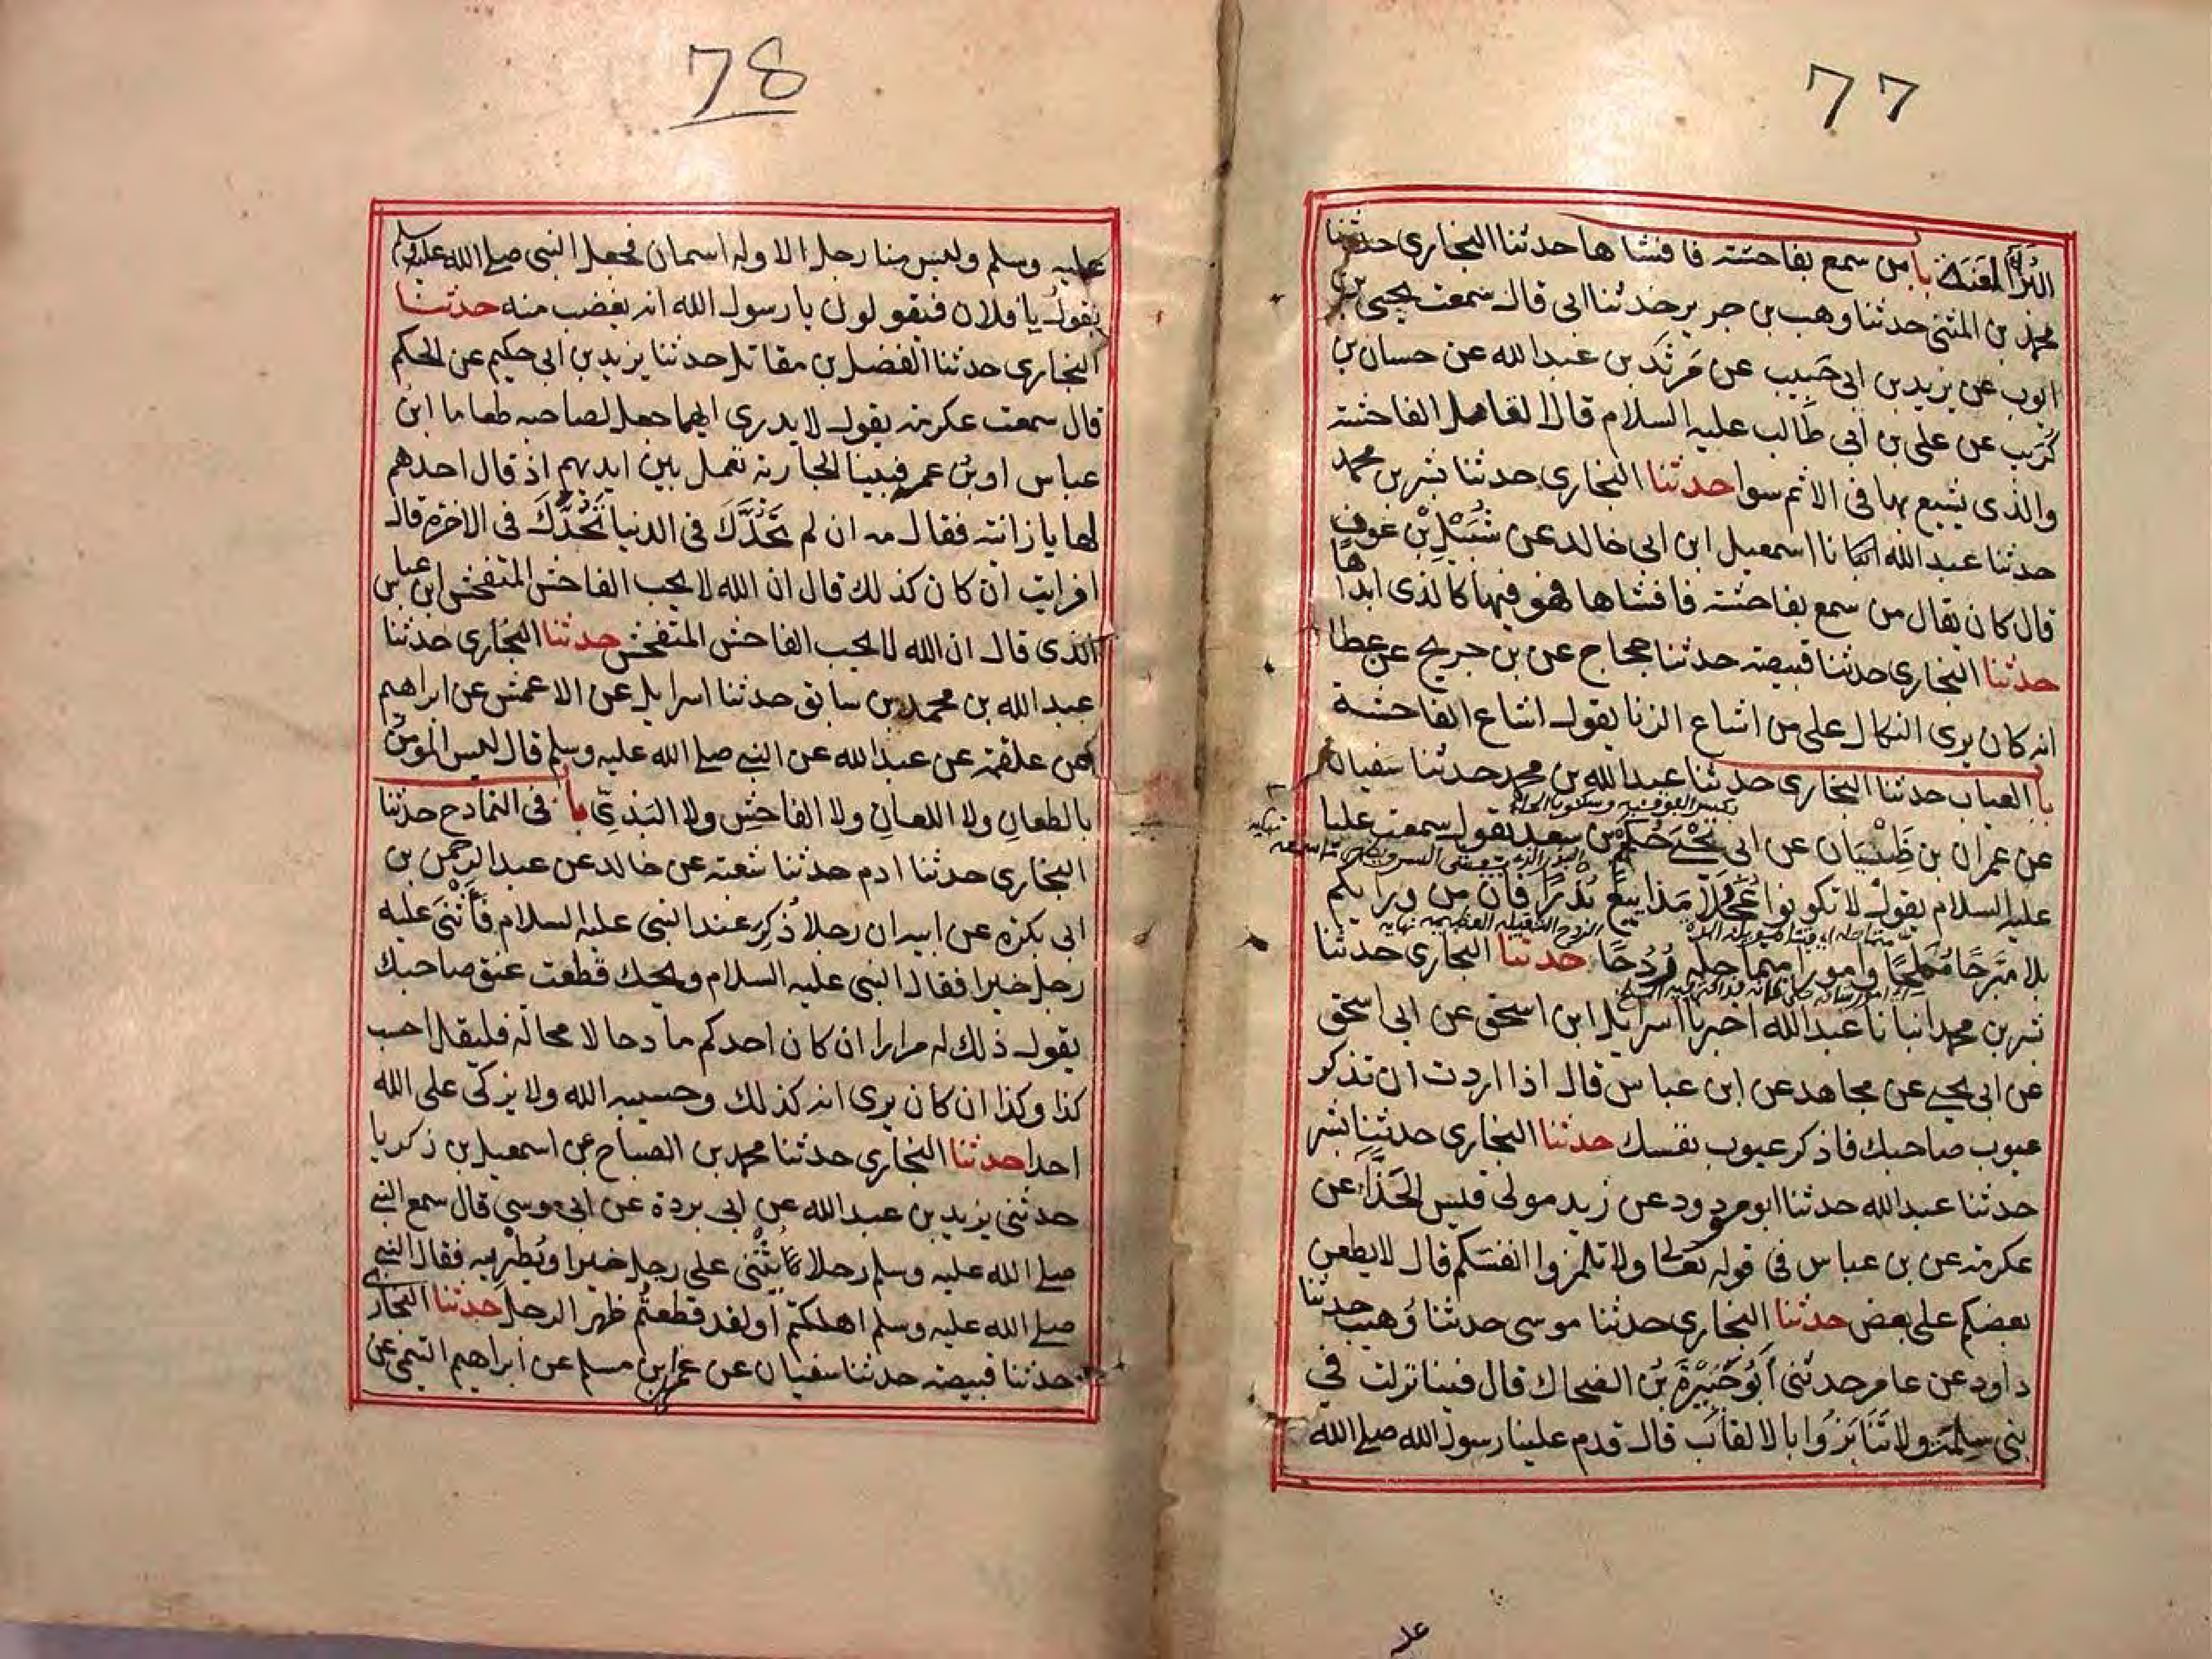 77
البُرَآءَ العَنَتَ باب من سمع بفاحشة فافشاها حدثنا البخاري حدثنا
محمد بن المثنى حدثنا وهب بن جرير حدثنا ابى قال سمعت يحيى بن
ايوب عن يزيد بن ابى حَبيب عن مَرثَد بن عبد الله عن حسان بن
كُرَيب عن على بن ابى طالب عليه السلام قال القاهل الفاحشة
والذى يشيع بها فى الاثم سوا حدثنا البخاري حدثنا بشر بن محمد
حدثنا عبد الله انبانا اسمعيل ابن ابى خالد عن شُبَيْلِ بْن عوف
قال كان يقال من سمع بفاحشة فافشاها فهو فيها كالذى ابداها
حدثنا البخاري حدثنا قبيصة حدثنا حجاج عن بن جريج عن عطا
انه كان يرى النكال على من اشاع الزنا يقول اشاع الفاحشة
باب العياب حدثنا البخاري حدثنا عبد الله بن محمد حدثنا سفيان
عن عمران بن ظَبْيَان عن ابى يحيى حُكَيْم بن سعد يقول سمعت عليا
عليه السلام يقول لا تكونوا عُجُلًا مَذاييع بُذرًا فان من ورايكم
بلا مبَرحًا مُملِحًا وامورا متماحله رُدُحًا حدثنا البخاري حدثنا
بشر بن محمد انبانا عبد الله اخبرنا اسرايل ابن اسحق عن ابى اسحق
عن ابى يحيى عن مجاهد عن ابن عباس قال اذا اردت ان تذكر
عيوب صاحبك فاذكر عيوب نفسك حدثنا البخاري حدثنا بشر
حدثنا عبد الله حدثنا ابو مودود عن زيد مولى قيس الحَذَّاء عن
عكرمة عن بن عباس فى قوله تعالى ولا تلمزوا انفسكم قال لا يطعن
بعضكم على بعض حدثنا البخاري حدثنا موسى حدثنا وُهيب حدثنا
داود عن عامر حدثنى اَبُو جَبِيْرَةَ بنُ الضحاك قال فينا نزلت فى
بنى سلِمَة ولا تَنَابَزُوا بالالقاب قال قدم علينا رسول الله صلى الله
78
عليه وسلم وليس منا رجل الا وله اسمان فجعل النبى صلى الله عليه وسلم
يقول يا فلان فيقولون يا رسول الله انه يغضب منه حدثنا
البخاري حدثنا الفضل بن مقاتل حدثنا يزيد بن ابى حكيم عن الحكم
قال سمعت عكرمة يقول لا يدرى ايهما جعل لصاحبه طعاما ابن
عباس او بن عمر فبينا الجارية تعمل بين ايديهم اذ قال احدهم
لها يا زانية فقال مه ان لم تَحُدَّكَ فى الدنيا تَحُدَّكَ فى الاخرة قال
افرايت ان كان كذلك قال ان الله لا يحب الفاحش المتفحش ابن عباس
الذى قال ان الله لا يحب الفاحش المتفحش حدثنا البخاري حدثنا
عبد الله بن محمد بن سابق حدثنا اسرايل عن الاعمش عن ابراهيم
عن علقمة عن عبد الله عن النبى صلى الله عليه وسلم قال ليس المومن
بالطعانِ ولا اللعانِ ولا الفاحشِ ولا البَذىِّ باب فى التمادح حدثنا
البخاري حدثنا ادم حدثنا شعبة عن خالد عن عبد الرحمن بن
ابى بكرة عن ابيه ان رجلا ذُكِرَ عند النبى عليه السلام فَأَثْنَى عليه
رجل خيرا فقال النبى عليه السلام ويحك قطعت عنق صاحبك
يقول ذلك له مرارا ان كان احدكم مادحا لا محالة فليقل احسب
كذا وكذا ان كان يرى انه كذلك وحسيبه الله ولا يزكى على الله
احدا حدثنا البخاري حدثنا محمد بن الصباح عن اسمعيل بن زكريا
حدثنى يزيد بن عبد الله عن ابى بردة عن ابى موسى قال سمع النبى
صلى الله عليه وسلم رجلا يُثْنى على رجل خيرا ويُطريه فقال النبى
صلى الله عليه وسلم اهلكتم او لقد قطعتُم ظهر الرجل حدثنا البخارى
حدثنا قبيصة حدثنا سفيان عن عمران بن مسلم عن ابراهيم التيمى عن